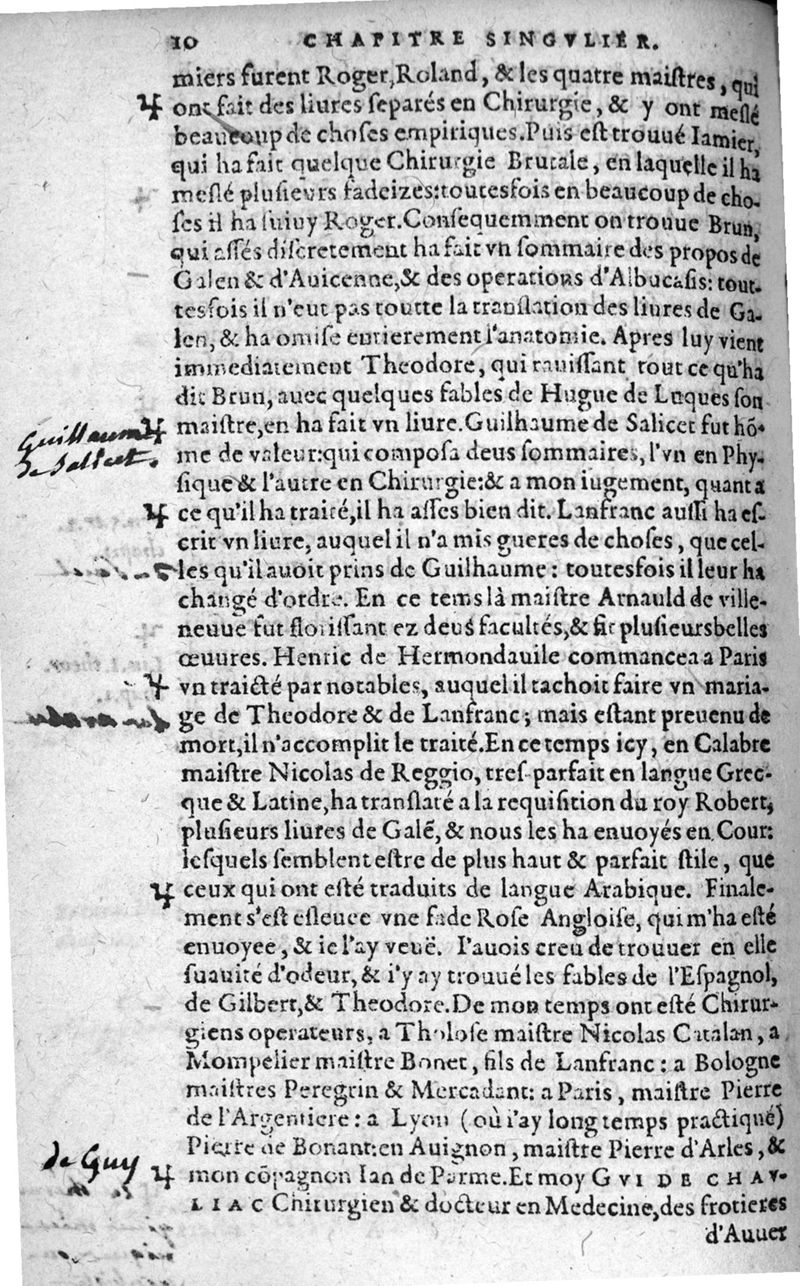 10 CHAPITRE SINGVLIER.
miers furent Roger, Roland, & les quatre maiſtres, qui
ont fait des liures ſeparés en Chirurgie, & y ont meſlé
beaucoup de choſes empiriques. Puis eſt trouué Iamier,
qui ha fait quelque Chirurgie Brutale, en laquelle il ha
meſlé pluſieurs fadeizes: toutesfois en beaucoup de cho-
ſes il ha ſuiuy Roger. Conſequemment on trouue Brun,
qui aſſés diſcretement ha fait vn ſommaire des propos de
Galen & d'Auicenne, & des operations d'Albucaſis: tout-
tesfois il n'eut pas toutte la tranſlation des liures de Ga-
len, & ha omiſe entierement l'anatomie. Apres luy vient
immediatement Theodore, qui rauiſſant tout ce qu'ha
dit Brun, auec quelques fables de Hugue de Luques ſon
maiſtre, en ha fait vn liure. Guilhaume de Salicet fut hõ-
Guillaume
de Salicet.
me de valeur: qui compoſa deus ſommaires, l'vn en Phy-
ſique & l'autre en Chirurgie: & a mon iugement, quant a
ce qu'il ha traité, il ha aſſes bien dit. Lanfranc auſſi ha eſ-
crit vn liure, auquel il n'a mis gueres de choſes, que cel-
les qu'il auoit prins de Guilhaume: toutesfois il leur ha
changé d'ordre. En ce tems là maiſtre Arnauld de ville-
neuue fut floriſſant ez deus facultés, & fit pluſieurs belles
œuures. Henric de Hermondauile commancea a Paris
vn traicté par notables, auquel il tachoit faire vn maria-
ge de Theodore & de Lanfranc; mais eſtant preuenu de
mort, il n'accomplit le traité. En ce temps icy, en Calabre
maiſtre Nicolas de Reggio, treſ-parfait en langue Grec-
que & Latine, ha tranſlaté a la requiſition du roy Robert,
pluſieurs liures de Galẽ, & nous les ha enuoyés en Cour:
leſquels ſemblent eſtre de plus haut & parfait ſtile, que
ceux qui ont eſté traduits de langue Arabique. Finale-
ment s'eſt eſleuee vne fade Roſe Angloiſe, qui m'ha eſté
enuoyee, & ie l'ay veuë. I'auois creu de trouuer en elle
ſuauité d'odeur, & i'y ay trouué les fables de l'Eſpagnol,
de Gilbert, & Theodore. De mon temps ont eſté Chirur-
giens operateurs, a Tholoſe maiſtre Nicolas Catalan, a
Mompelier maiſtre Bonet, fils de Lanfranc: a Bologne
maiſtres Peregrin & Mercadant: a Paris, maiſtre Pierre
de l'Argentiere: a Lyon (où i'ay long temps practiqué)
Pierre de Bonant: en Auignon, maiſtre Pierre d'Arles, &
de Guy
mon cõpagnon Ian de Parme. Et moy GVI DE CHAV-
LIAC Chirurgien & docteur en Medecine, des frotieres
d'Auuer